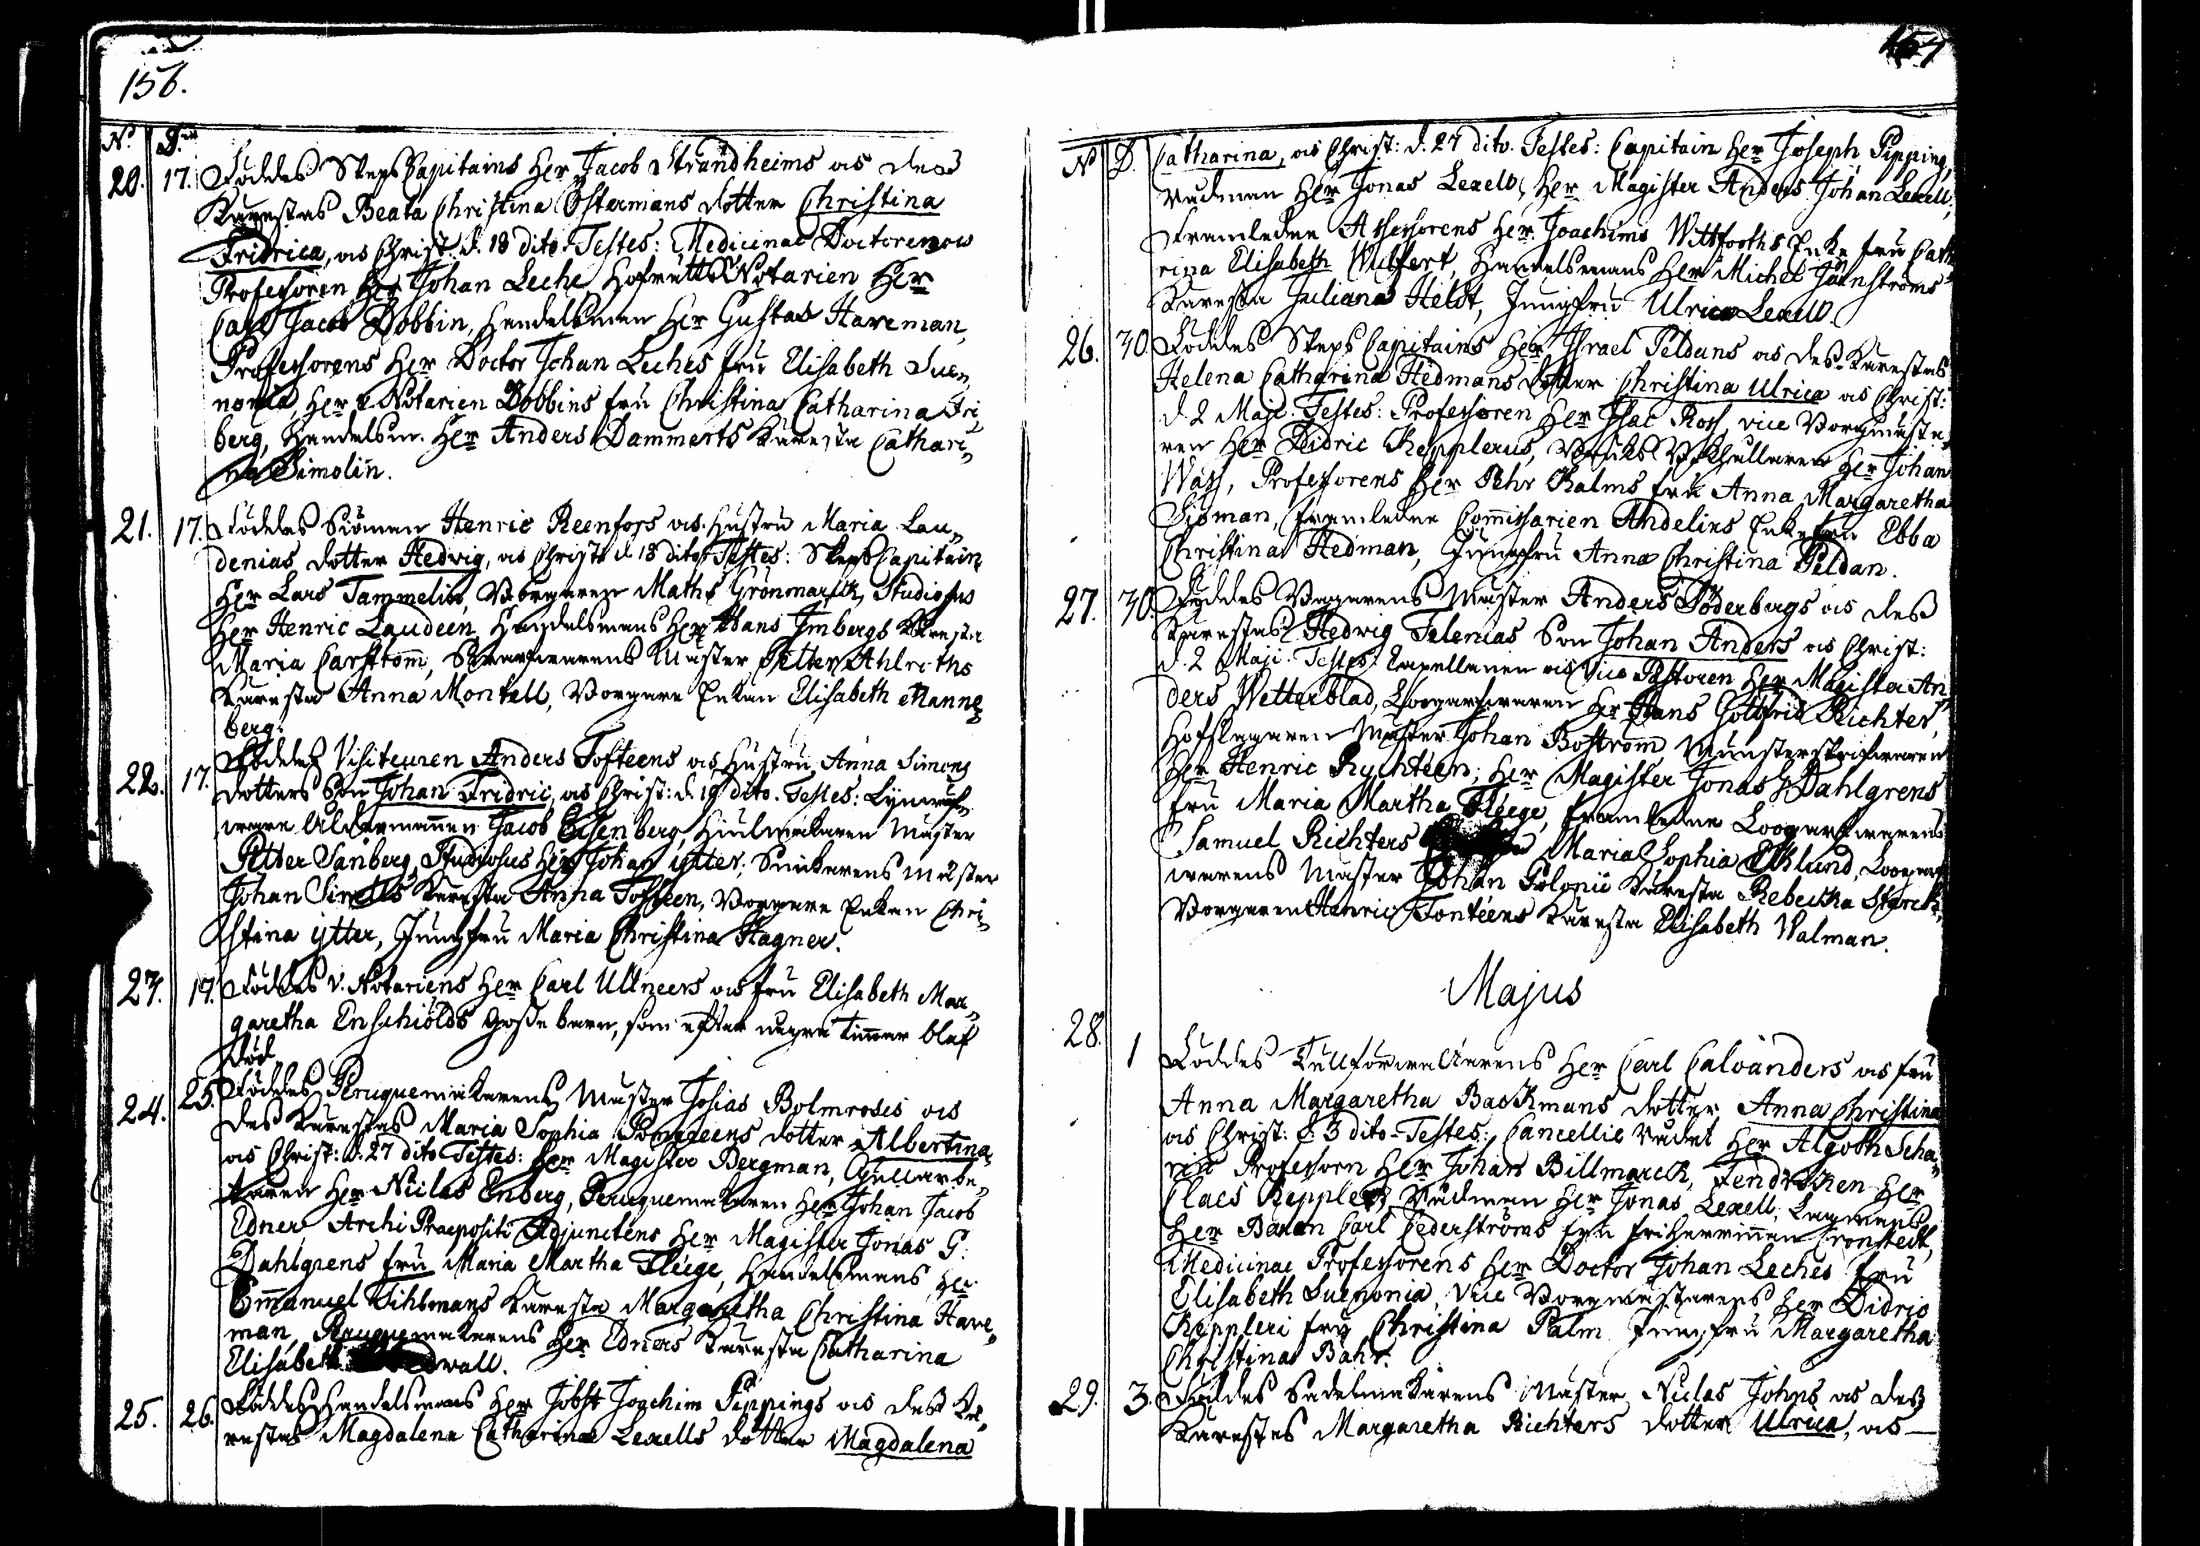 156.
N.o D.
20. 17. Föddes SkepsCapitains Her Jacob Strandheims os des
Kärestas Beata Christina Östermans dotter Christina
Fridrica, os Christ. d. 18 dito. Testes: Medicinae Doctoren os
Professoren Her Johan Leche, HofrättsNotarien Her
Carl Jacob Dobbin, Handelsman Her Gustav Haveman,
Professorens Her Doctor Johan Leches fru Elisabeth Sue,,
nonia, Her Notarien Dobbins fru Christina Catharina Fri,,
berg, Handelsm. Her Anders Dammerts Käresta Cathari,,
na Simolin.
21. 17. Föddes Siöman Henric Reenfors os Hustru Maria Lau,,
denias dotter Hedvig, os Christ. d. 18 dito Testes: SkepsCapitain
Her Lars Tammelin, Borgaren Math: Grönmarck, Studiosus
Her Henric Laudeen, Handelsmans Her Hans Imbergs Käresta
Maria Carström, Mäster Petter Ahlreths
Käresta Anna Montell, Borgare Enkan Elisabeth Manne,,
berg.
22. 17. Föddes Visiteuren Anders Tofteens os Hustru Anna Simons
dotters Son Johan Fridric, os Christ: d. 19 dito. Testes:
Åldermannen Jacob Eisenberg, Hiulmakaren Mäster
Petter Sanberg, Studiosus Her Johan ytter, Snickarens Mäster
Johan Sirells Käresta Anna Tofteen, Borgare Enkan Chri,,
stina ytter, Jungfru Maria Christina Hagner.
23. 19. Föddes V. Notariens Her Carl Ullneers os fru Elisabeth Mar,,
garetha Enschiölds Gosse barn, som efter några timmar blef
död.
24. 25. Föddes Peruquemakarens Mäster Josias Bolmrosis os
des Kärestas Maria Sophia dotter Albertina,
os Christ: d. 27 dito Testes: Her Magister Bergman,
Her Niclas Enberg, Peruquemakaren Her Johan Jacob
Edner, Archi Praepositi Adjunctens Her Magister Jonas G.
Dahlgrens fru Maria Martha Fleege, Handelsmans Her
Emanuel Tihlmans Käresta Margaretha Christina Have,,
man, Peruquemakarens Her Edners Käresta Catharina
Elisabeth
25. 26. Föddes Handelsmans Her Jobst Joachim Pippings os des Kä,,
restas Magdalena Catharina Lexells dotter Magdalena
157
N D. Catharina, os Christ: d. 27 dito. Testes: Capitain Her Joseph Pipping,
Rådman Her Jonas Lexell, Her Magister Anders Johan Lexell,
Framledne Assessorens Her Joachims Wittfooths Enke fru Catha
rina Elisabeth Wulfert, Handelsmans Her Michel Järnströms
Käresta Juliana Heldt, Jungfru Ulrica Lexell.
26. 30. Föddes Skeps Capitains Her Israel Peldans os des Kärestas
Helena Catharina Hedmans dotter Christina Ulrica os Christ:
d. 2 Maji. Testes: Professoren Her Isac Ross, vice Borgmästa,,
ren Her Didric Kepplerus, Her Johan
Wass, Professorens Her Pehr Kalms fru Anna Margaretha
Siöman, framledne Commissarien Andelins Enkefru Ebba
Christina Hedman, Jungfru Anna Christina Peldan.
27. 30. Föddes Mäster Anders Söderbergs os des
Kärestas Hedvig Telenias Son Johan Anders os Christ:
d. 2 Maji. Testes: Capellanen os Vice Pastoren Her Magister An,,
ders Wetterblad, Her Hans Gottfrid Richter,
Hofslagaren Mäster Johan Boström Mönsterskrifvaren
Her Henric Rychteen, Her Magister Jonas Dahlgrens
fru Maria Martha Fleege, framledne
Samuel Richters Maria Sophia Eklund,
Mäster Johan Polonii Käresta Rebecka Starck,
Borgaren Henric Fonteens Käresta Elisabeth Walman.
Majus
28. 1 Föddes Tullförvaltarens Her Carl Calvanders os fru
Anna Margaretha Backmans dotter Anna Christina
os Christ: d. 3 dito. Testes: Cancellie Rådet Her Algoth Sca,,
rin Professorn Her Johan Billmarck, Fendricken Her
Claes Keppler, Rådman Her Jonas Lexell, Lagmans
Her Baron Carl Cederströms fru Friherrinnan Cronstedt,
Medicinae Professorens Her Doctor Johan Leches fru
Elisabeth Suenonia, Vice Borgmästarens Her Didric
Keppleri fru Christina Palm Jungfru Margaretha
Christina Bahr.
29. 3. Föddes Sadelmakarens Mäster Niclas Johns os des
Kärestas Margaretha Richters dotter Ulrica, os